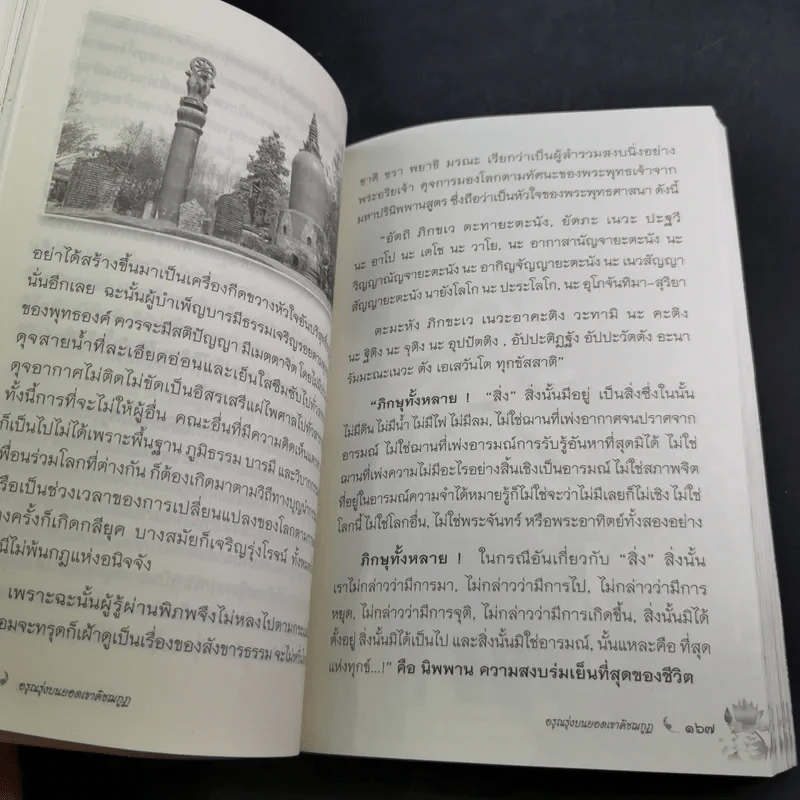 อย่าได้สร้างขึ้นมาเป็นเครื่องกีดขวางหัวใจอันบริสุทธิ์
นั่นอีกเลย ฉะนั้นผู้บำเพ็ญบารมีธรรมเจริญรอยตาม
ของพุทธองค์ ควรจะมีสติปัญญา มีเมตตาจิต โดยไม่
ดุจสายน้ำที่ละเอียดอ่อนและเย็นใสซึมซับไปทั่ว
ดุจอากาศไม่ติดไม่ขัดเป็นอิสรเสรีแผ่ไพศาลไปทั่ว
ทั้งนี้การที่จะไม่ให้ผู้อื่น คณะอื่นที่มีความคิดเห็น
ก็เป็นไปไม่ได้เพราะพื้นฐาน ภูมิธรรม บารมี และวิบาก
พื่อนร่วมโลกที่ต่างกัน ก็ต้องเกิดมาตามวิถีทางบุญนำ
รือเป็นช่วงเวลาของการเปลี่ยนแปลงของโลกตาม
างครั้งก็เกิดกลียุค บางสมัยก็เจริญรุ่งโรจน์ ทั้งหมด
นีไม่พ้นกฎแห่งอนิจจัง
เพราะฉะนั้นผู้รู้ผ่านพิภพจึงไม่หลงไปตาม
อมจะทรุดก็เฝ้าดูเป็นเรื่องของสังขารธรรม จะไม่
อรุณรุ่งบนยอดเขาคิชฌกูฏ
ชาติ ชรา พยาธิ มรณะ เรียกว่าเป็นผู้สำรวมสงบนิ่งอย่าง
พระอริยเจ้า ดุจการมองโลกตามทัศนะของพระพุทธเจ้าจาก
มหาปรินิพพานสูตร ซึ่งถือว่าเป็นหัวใจของพระพุทธศาสนา ดังนี้
“อัตถิ ภิกขเว ตะทายะตะนัง, ยัตถะ เนวะ ปะฐวี
นะ อาโป นะ เตโช นะ วาโย, นะ อากาสานัญจายะตะนัง นะ
วิญญาณัญจายะตะนัง นะ อากิญจัญญายะตะนัง นะ เนวสัญญา
สัญญายะตะนัง นายังโลโก นะ ปะระโลโก, นะ อุโภจันทิมา-สุริยา
ตะมะหัง ภิกขะเว เนวะอาคะติง วะทามิ นะ คะติง
นะ ฐิติง นะ จุติง นะ อุปปัตติง , อัปปะติฏฐัง อัปปะวัตตัง อะนา
รัมมะณะเนวะ ตัง เอเสวันโต ทุกขัสสาติ”
“ภิกษุทั้งหลาย ! “สิ่ง” สิ่งนั้นมีอยู่ เป็นสิ่งซึ่งในนั้น
ไม่มีดิน ไม่มีน้ำ ไม่มีไฟ ไม่มีลม, ไม่ใช่ฌานที่เพ่งอากาศจนปราศจาก
อารมณ์ ไม่ใช่ฌานที่เพ่งอารมณ์การรับรู้อันหาที่สุดมิได้ ไม่ใช่
ฌานที่เพ่งความไม่มีอะไรอย่างสิ้นเชิงเป็นอารมณ์ ไม่ใช่สภาพจิต
ที่อยู่ในอารมณ์ความจำได้หมายรู้ก็ไม่ใช่จะว่าไม่มีเลยก็ไม่เชิง ไม่ใช่
โลกนี้ ไม่ใช่โลกอื่น, ไม่ใช่พระจันทร์ หรือพระอาทิตย์ทั้งสองอย่าง
ภิกษุทั้งหลาย ! ในกรณีอันเกี่ยวกับ “สิ่ง” สิ่งนั้น
เราไม่กล่าวว่ามีการมา, ไม่กล่าวว่ามีการไป, ไม่กล่าวว่ามีการ
หยุด, ไม่กล่าวว่ามีการจุติ, ไม่กล่าวว่ามีการเกิดขึ้น, สิ่งนั้นมิได้
ตั้งอยู่ สิ่งนั้นมิได้เป็นไป และสิ่งนั้นมิใช่อารมณ์, นั้นแหละคือ ที่สุด
แห่งทุกข์...!” คือ นิพพาน ความสงบร่มเย็นที่สุดของชีวิต
อรุณรุ่งบนยอดเขาคิชฌกูฏ ๑๖๗